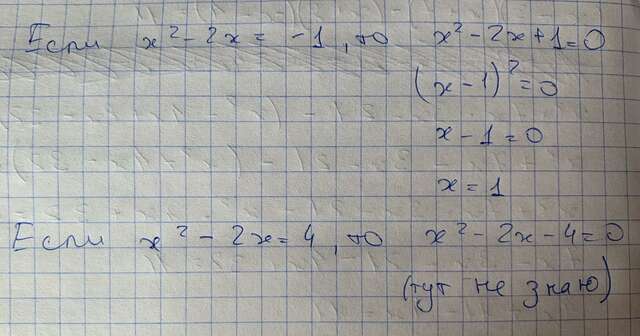 Если x² - 2x = -1, то x² - 2x + 1 = 0
(x - 1)² = 0
x - 1 = 0
x = 1
Если x² - 2x = 4, то x² - 2x - 4 = 0
(тут не знаю)